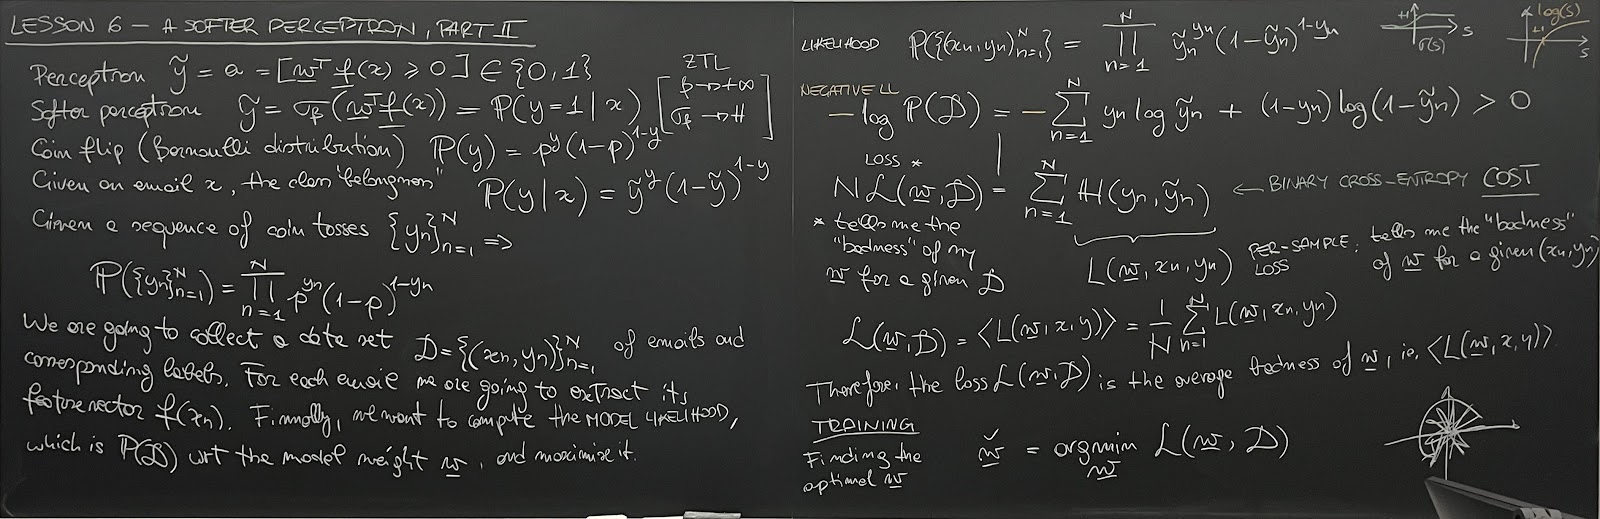 LESSON 6 – A SOFTER PERCEPTRON, PART II
Perceptron ỹ = a = [w^T f(x) ⩾ 0] ∈ {0,1}
Softer perceptron ỹ = σ_β(w^T f(x)) = ℙ(y=1|x)
ZTL
β → +∞
σ_β → H
Coin flip (Bernoulli distribution) ℙ(y) = p^y (1-p)^{1-y}
Given an email x, the class "belongness" ℙ(y|x) = ỹ^y (1-ỹ)^{1-y}
Given a sequence of coin tosses {y_n}_{n=1}^N =>
ℙ({y_n}_{n=1}^N) = ∏_{n=1}^N p^{y_n} (1-p)^{1-y_n}
We are going to collect a data set 𝒟 = {(x_n, y_n)}_{n=1}^N of emails and
corresponding labels. For each email we are going to extract its
feature vector f(x_n). Finally, we want to compute the MODEL LIKELIHOOD,
which is ℙ(𝒟) wrt the model weight w, and maximise it.
LIKELIHOOD ℙ({(x_n, y_n)}_{n=1}^N} = ∏_{n=1}^N ỹ_n^{y_n} (1-ỹ_n)^{1-y_n}
+1
σ(s)
s
log(s)
+1
s
NEGATIVE LL
-log ℙ(𝒟) = -∑_{n=1}^N y_n log ỹ_n + (1-y_n) log(1-ỹ_n) > 0
LOSS *
N ℒ(w, 𝒟) = ∑_{n=1}^N ℍ(y_n, ỹ_n) ← BINARY CROSS-ENTROPY COST
* tells me the
"badness" of my
w for a given 𝒟
L(w, x_n, y_n) PER-SAMPLE LOSS : tells me the "badness"
of w for a given (x_n, y_n)
ℒ(w, 𝒟) = ⟨L(w, x, y)⟩ = 1/N ∑_{n=1}^N L(w, x_n, y_n)
Therefore, the loss ℒ(w, 𝒟) is the average badness of w, i.e. ⟨L(w, x, y)⟩.
TRAINING
Finding the
optimal w
w̌ = argmin_w ℒ(w, 𝒟)